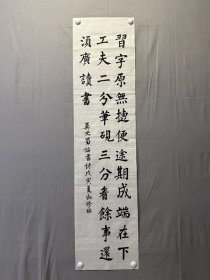 習字原無捷便途期成端在下
工夫二分筆硯三分看餘事還
須廣讀書